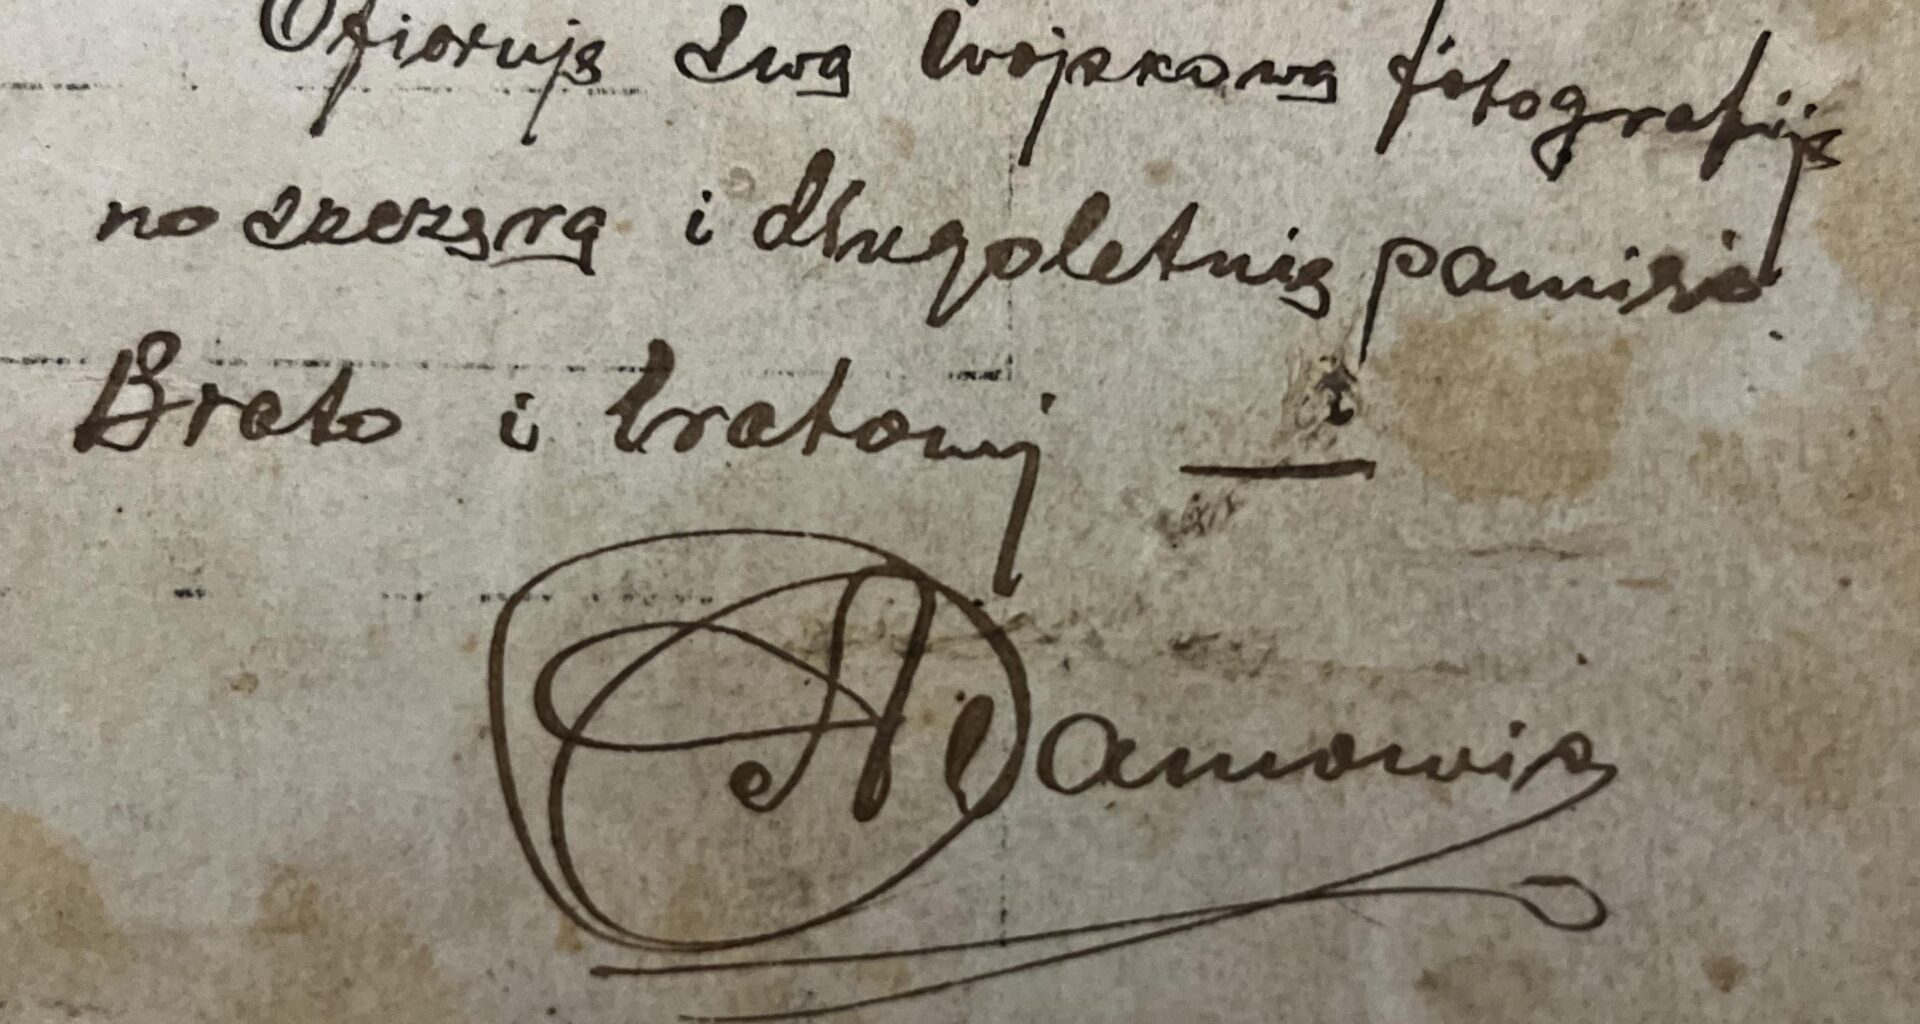 Ofiaruję swą wojskową fotografiję
na szczerą i długoletnią pamięć
Brata i bratowij
Adamowicz